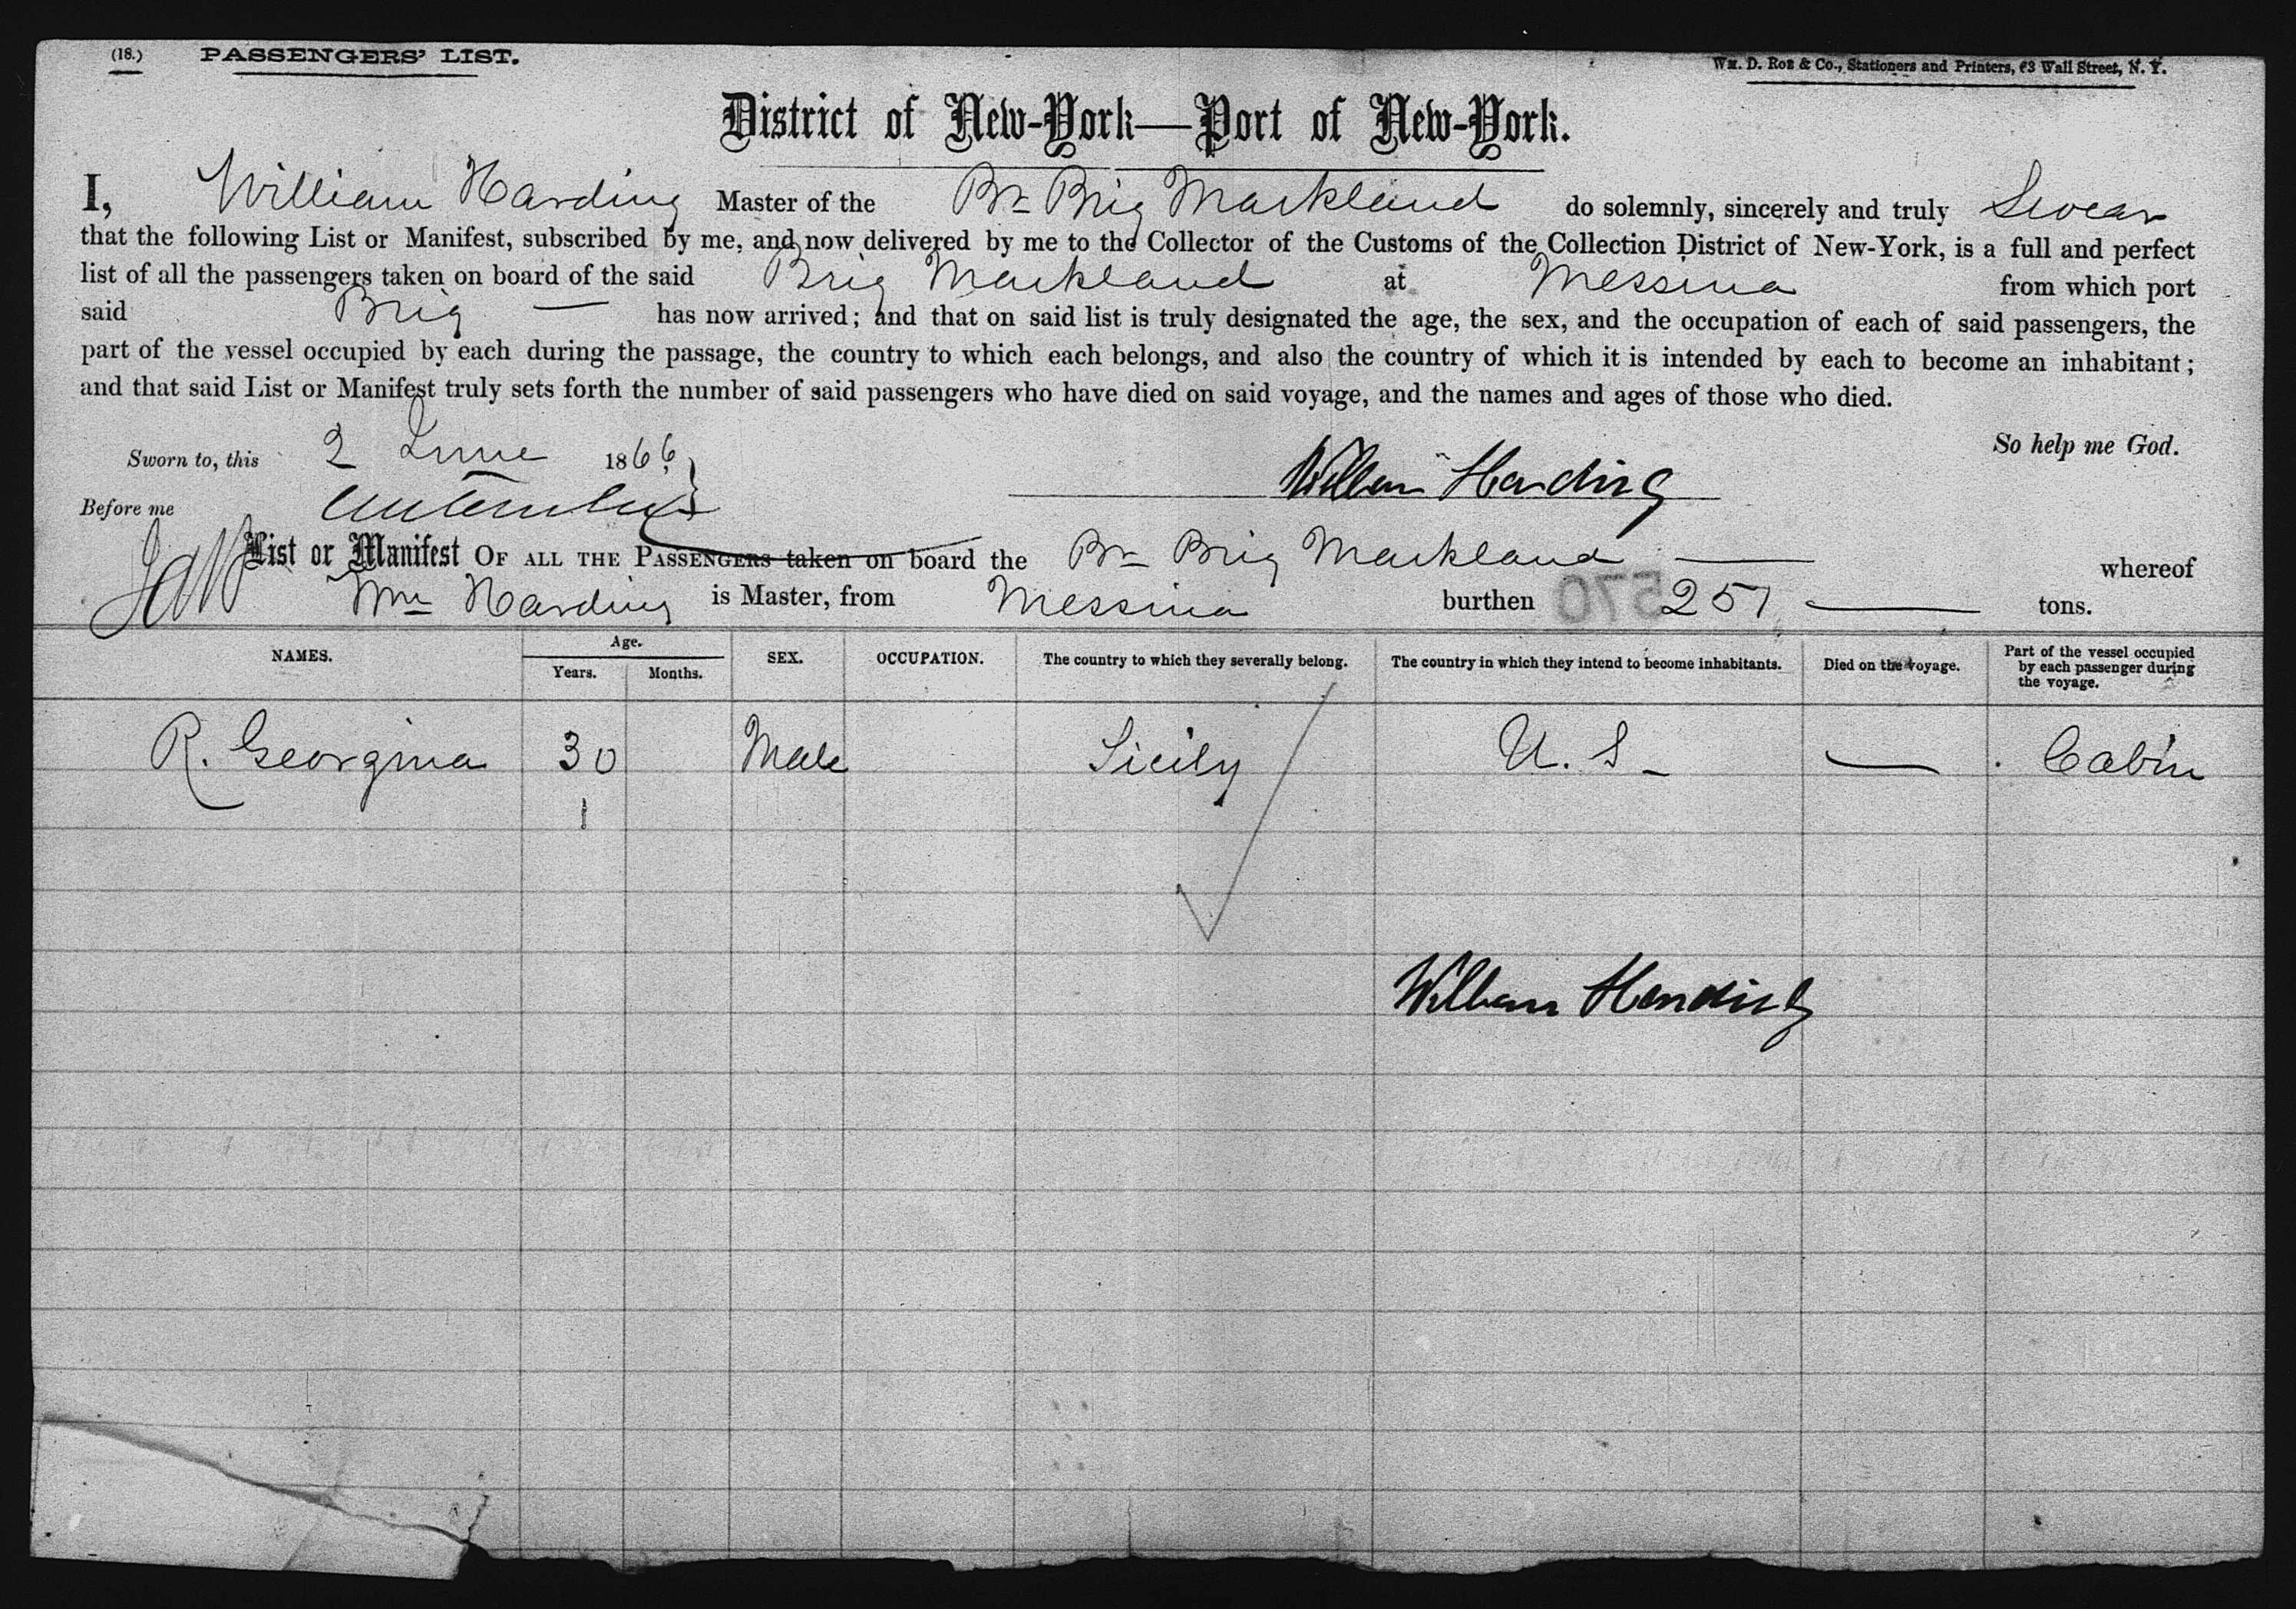 (18.) PASSENGERS' LIST.
Wm. D. Roe & Co., Stationers and Printers, 63 Wall Street, N. Y.
District of New-York—Port of New-York.
I, William Harding Master of the Br Brig Markland do solemnly, sincerely and truly Swear
that the following List or Manifest, subscribed by me, and now delivered by me to the Collector of the Customs of the Collection District of New-York, is a full and perfect
list of all the passengers taken on board of the said Brig Markland at Messina from which port
said Brig — has now arrived; and that on said list is truly designated the age, the sex, and the occupation of each of said passengers, the
part of the vessel occupied by each during the passage, the country to which each belongs, and also the country of which it is intended by each to become an inhabitant;
and that said List or Manifest truly sets forth the number of said passengers who have died on said voyage, and the names and ages of those who died.
So help me God.
Sworn to, this 2 June 1866
William Harding
Before me
List or Manifest OF ALL THE PASSENGERS taken on board the Br Brig Markland — whereof
Wm Harding is Master, from Messina burthen 570 257 — tons.
NAMES. Age. Years. Months. SEX. OCCUPATION. The country to which they severally belong. The country in which they intend to become inhabitants. Died on the voyage. Part of the vessel occupied by each passenger during the voyage.
R. Georgina 30 Male Sicily U. S — Cabin
1
William Harding